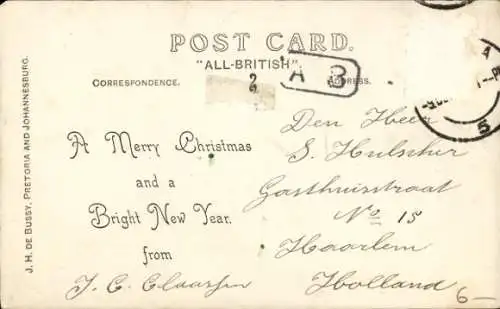 POST CARD.
"ALL-BRITISH".
CORRESPONDENCE.
ADDRESS.
A B
J. H. DE BUSSY, PRETORIA AND JOHANNESBURG.
A Merry Christmas
and a
Bright New Year.
from
J. C. Claassen
Den Heer
S. Hulscher
Gasthuisstraat
No 15
Haarlem
Holland
6—